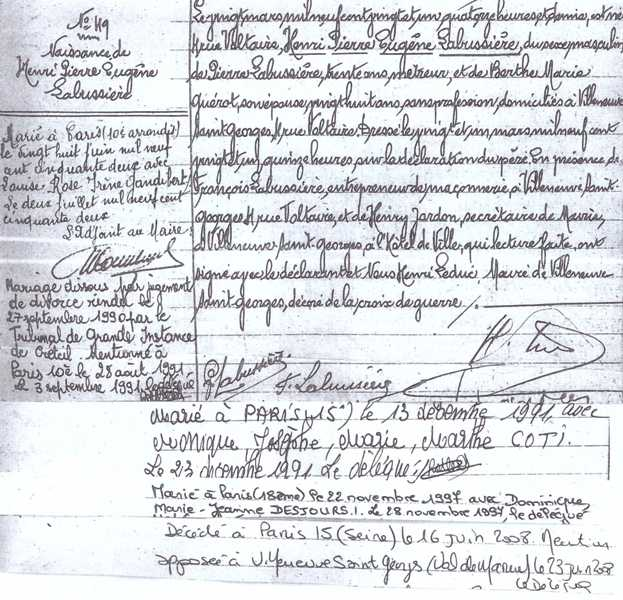 No 119
Naissance de
Henri Pierre Eugêne
Labussière
Marié à Paris (10è arrondt)
le vingt huit juin mil neuf
cent cinquante deux avec
Louise Rose Irène
Le deux juillet mil neuf cent
cinquante deux
L'Adjoint au Maire:
Mariage dissous par jugement
de divorce rendu le
27 septembre 1990 par le
Tribunal de Grande Instance
de Créteil. Mentionné à
Paris 10è le 28 août 1991
le 3 septembre 1991
Le vingt mars, mil neuf cent vingt et un, quatorze heures et demie, est né
rue Voltaire, Henri Pierre Eugêne Labussière, du sexe masculin,
de Pierre Labussière, trente ans, métreur, et de Berthe Marie
Guérot, son épouse, vingt huit ans, sans profession, domiciliés à Villeneuve
Saint Georges, rue Voltaire. Dressé le vingt et un, mars, mil neuf cent
vingt et un, quinze heures, sur la déclaration du père. En présence de
François Labussière, entrepreneur de maçonnerie, à Villeneuve Saint-
Georges rue Voltaire, et de Henry Jardon, secrétaire de Mairie,
à Villeneuve Saint Georges, à l'Hôtel de Ville, qui lecture faite, ont
signé avec le déclarant et Nous Henri Leduc, Maire de Villeneuve
Saint Georges, décoré de la croix de guerre./.
Labussière F. Labussière
Marié à PARIS (15è) le 13 décembre 1991 avec
Monique, Josèphe, Marie, Marthe COTI.
Le 23 décembre 1991 Le délégué:
Marié à Paris (18ème) le 22 novembre 1997 avec Dominique
Marie-Jeanne DESJOURS.I. Le 28 novembre 1997, le délégué
Décédé à Paris 15 (Seine) le 16 juin 2008. Mention
apposée à Villeneuve Saint Georges (Val de Marne) le 23 juin 2008
Le Délégué